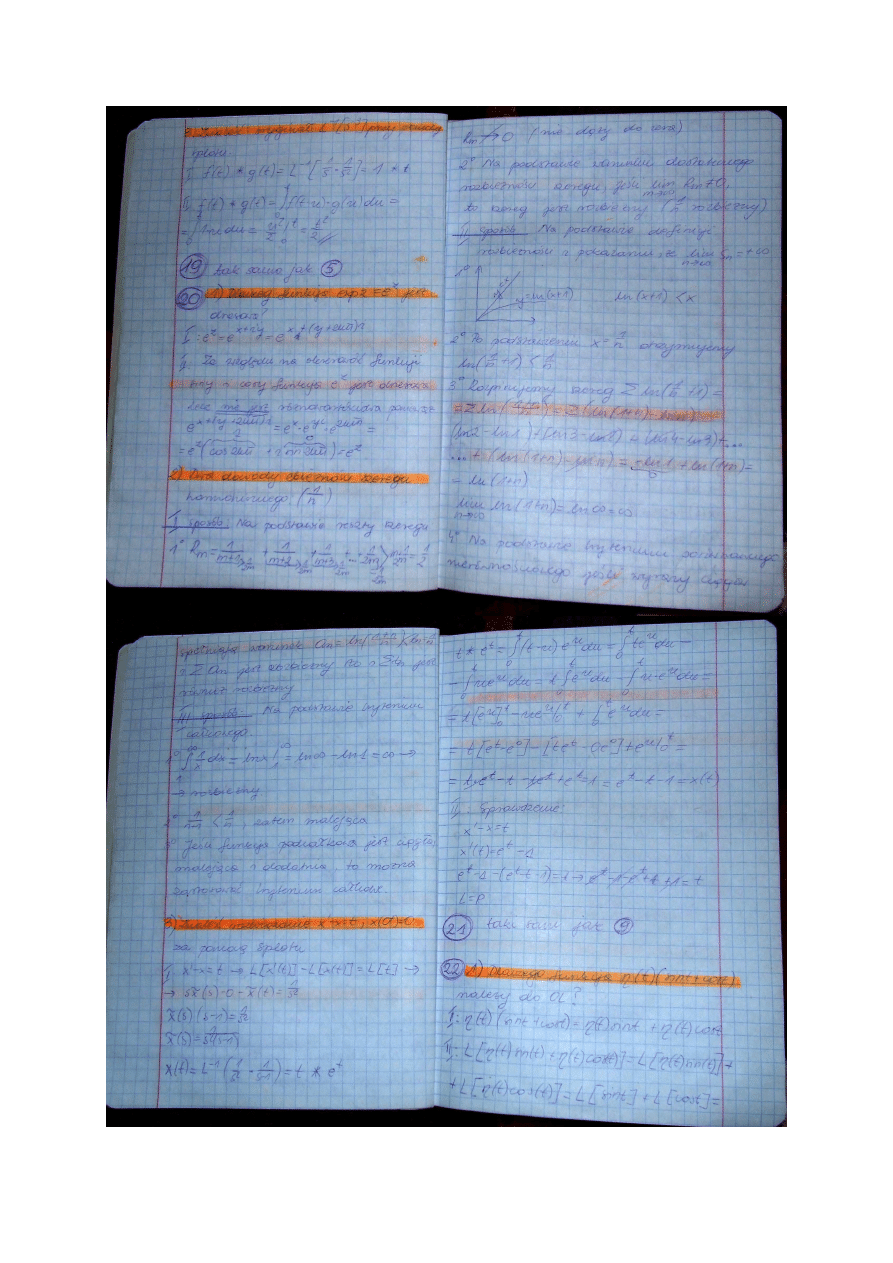 3) Znaleźć oryginał L⁻¹(1/s³) przy pomocy
splotu.
I. f(t) * g(t) = L⁻¹[1/s · 1/s²] = 1 * t
II f(t) * g(t) = ∫₀ᵗ f(t-u)·g(u)du =
= ∫₀ᵗ 1·u du = u²/2 |₀ᵗ = t²/2
19 tak samo jak 5
20 1) Dlaczego funkcja exp z = eᶻ jest
okresowa?
I: eᶻ = e^(x+iy) = e^(x+(y+2kπ)i)
II: Ze względu na okresowość funkcji
eᶻ jest okresowa
więc nie jest różnowartościowa ponieważ
e^(x+(y+2kπ)i) = eˣ·e^(yi)·e^(2kπi) =
= eᶻ(cos2kπ + i sin2kπ) = eᶻ
2) Dwa dowody zbieżności szeregu
harmonicznego (1/n)
I sposób: Na podstawie reszty szeregu
1° Rₘ = 1/(m+1) + 1/(m+2) + 1/(m+3) + ... + 1/2m > m·1/2m = 1/2
Rₘ ↛ 0 (nie dąży do zera)
2° Na podstawie warunku dostatecznego
rozbieżności szeregu, jeśli lim Rₘ ≠ 0,
to szereg jest rozbieżny (1/n rozbieżny)
II sposób: Na podstawie definicji
rozbieżności i pokazania, że lim Sₙ = +∞
1° y=x y=ln(x+1) ln(x+1) < x
2° Po podstawieniu x = 1/n otrzymujemy
ln(1/n + 1) < 1/n
3° Rozpisujemy szereg Σ ln(1/n + 1) =
= Σ ln((1+n)/n) = Σ (ln(1+n) - ln n) =
(ln2 - ln1) + (ln3 - ln2) + (ln4 - ln3) + ...
... + (ln(1+n) - ln n) = -ln 1 + ln(1+n) =
= ln(1+n)
lim n→∞ ln(1+n) = ln ∞ = ∞
4° Na podstawie kryterium porównawczego
jeśli wyrazy ciągu
spełniają warunek aₙ = ln((1+n)/n) < bₙ = 1/n
i Σ aₙ jest rozbieżny to i Σ bₙ jest
również rozbieżny
III sposób: Na podstawie kryterium
całkowego.
1° ∫₁^∞ 1/x dx = lnx |₁^∞ = ln∞ - ln1 = ∞ →
→ rozbieżny
2° 1/(n+1) < 1/n, zatem malejąca
3° Jeśli funkcja podcałkowa jest ciągła,
malejąca i dodatnia, to można
zastosować kryterium całkowe.
3) Znaleźć rozwiązanie x'-x=t, x(0)=0
za pomocą splotu
I x'-x = t → L[x'(t)] - L[x(t)] = L[t] →
→ sx̄(s) - 0 - x̄(t) = 1/s²
x̄(s)(s-1) = 1/s²
x̄(s) = 1/(s²(s-1))
x(t) = L⁻¹(1/s² · 1/(s-1)) = t * eᵗ
t * eᵗ = ∫₀ᵗ (t-u)eᵘdu = ∫₀ᵗ teᵘdu -
- ∫₀ᵗ ueᵘdu = t∫₀ᵗ eᵘdu - ∫₀ᵗ u·eᵘdu =
= t[eᵘ]₀ᵗ - ueᵘ|₀ᵗ + ∫₀ᵗ eᵘdu =
= t[eᵗ-e⁰] - [teᵗ - 0e⁰] + eᵘ|₀ᵗ =
= teᵗ - t - teᵗ + eᵗ - 1 = eᵗ - t - 1 = x(t)
II: Sprawdzenie:
x'-x=t
x'(t) = eᵗ - 1
eᵗ - 1 - (eᵗ - t - 1) = t → eᵗ - 1 - eᵗ + t + 1 = t
L=P
21 taki sam jak 9
22 1) Dlaczego funkcja η(t)(sint+cost)
należy do OL?
I: η(t)(sint+cost) = η(t)sint + η(t)cost
II: L[η(t)sin(t) + η(t)cos(t)] = L[η(t)sin(t)] +
+ L[η(t)cos(t)] = L[sint] + L[cost] =